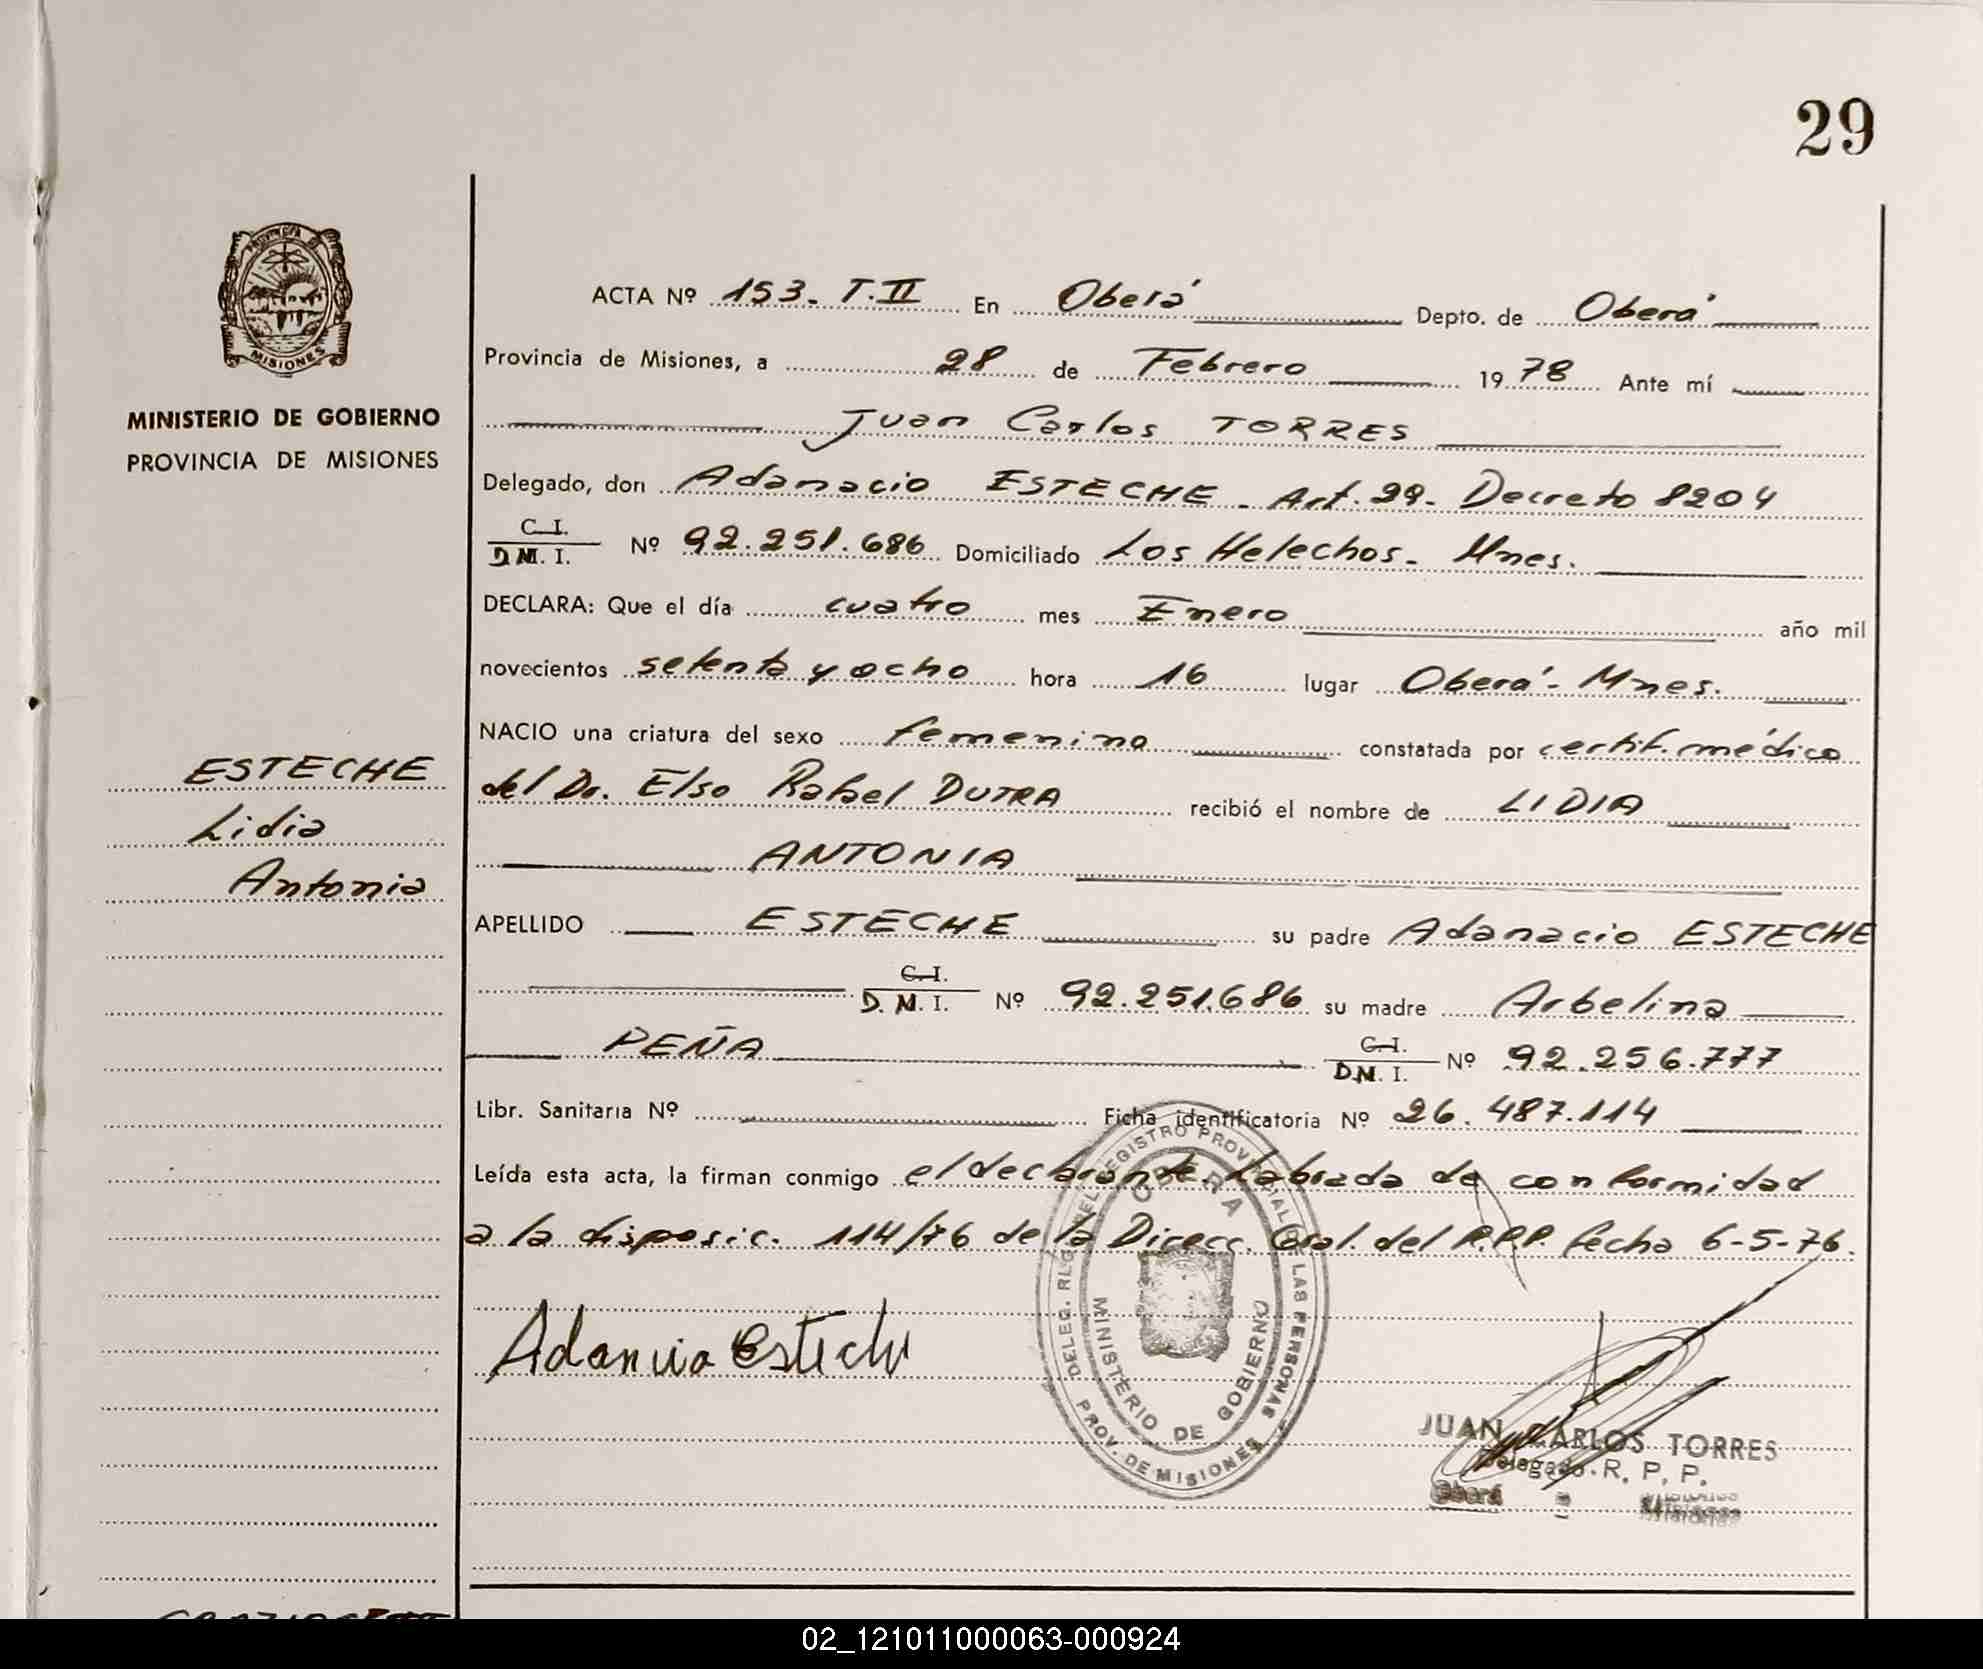 29
PROVINCIA DE
MISIONES
MINISTERIO DE GOBIERNO
PROVINCIA DE MISIONES
ESTECHE
Lidia
Antonia
ACTA Nº 153. T. II En Oberá Depto. de Oberá
Provincia de Misiones, a 28 de Febrero 1978 Ante mí
Juan Carlos TORRES
Delegado, don Adanacio ESTECHE - Art. 29 - Decreto 8204
C. I.
D. M. I. Nº 92.251.686 Domiciliado Los Helechos - Mnes.
DECLARA: Que el día cuatro mes Enero año mil
novecientos setenta y ocho hora 16 lugar Oberá - Mnes.
NACIO una criatura del sexo femenino constatada por certif. médico
del Dr. Elso Rafael DUTRA recibió el nombre de LIDIA
ANTONIA
APELLIDO ESTECHE su padre Adanacio ESTECHE
C. I.
D. M. I. Nº 92.251.686 su madre Arbelina
PEÑA C. I.
D. M. I. Nº 92.256.777
Libr. Sanitaria Nº Ficha identificatoria Nº 26.487.114
Leída esta acta, la firman conmigo el declarante. Labrada de conformidad
a la disposic. 114/76 de la Direcc. Gral. del R.P.P. fecha 6-5-76.
DELEG. REG. DEL REGISTRO PROVINCIAL DE LAS PERSONAS
PROV. DE MISIONES
OBERA
MINISTERIO DE GOBIERNO
JUAN CARLOS TORRES
Delegado R. P. P.
Oberá - Misiones
02_121011000063-000924